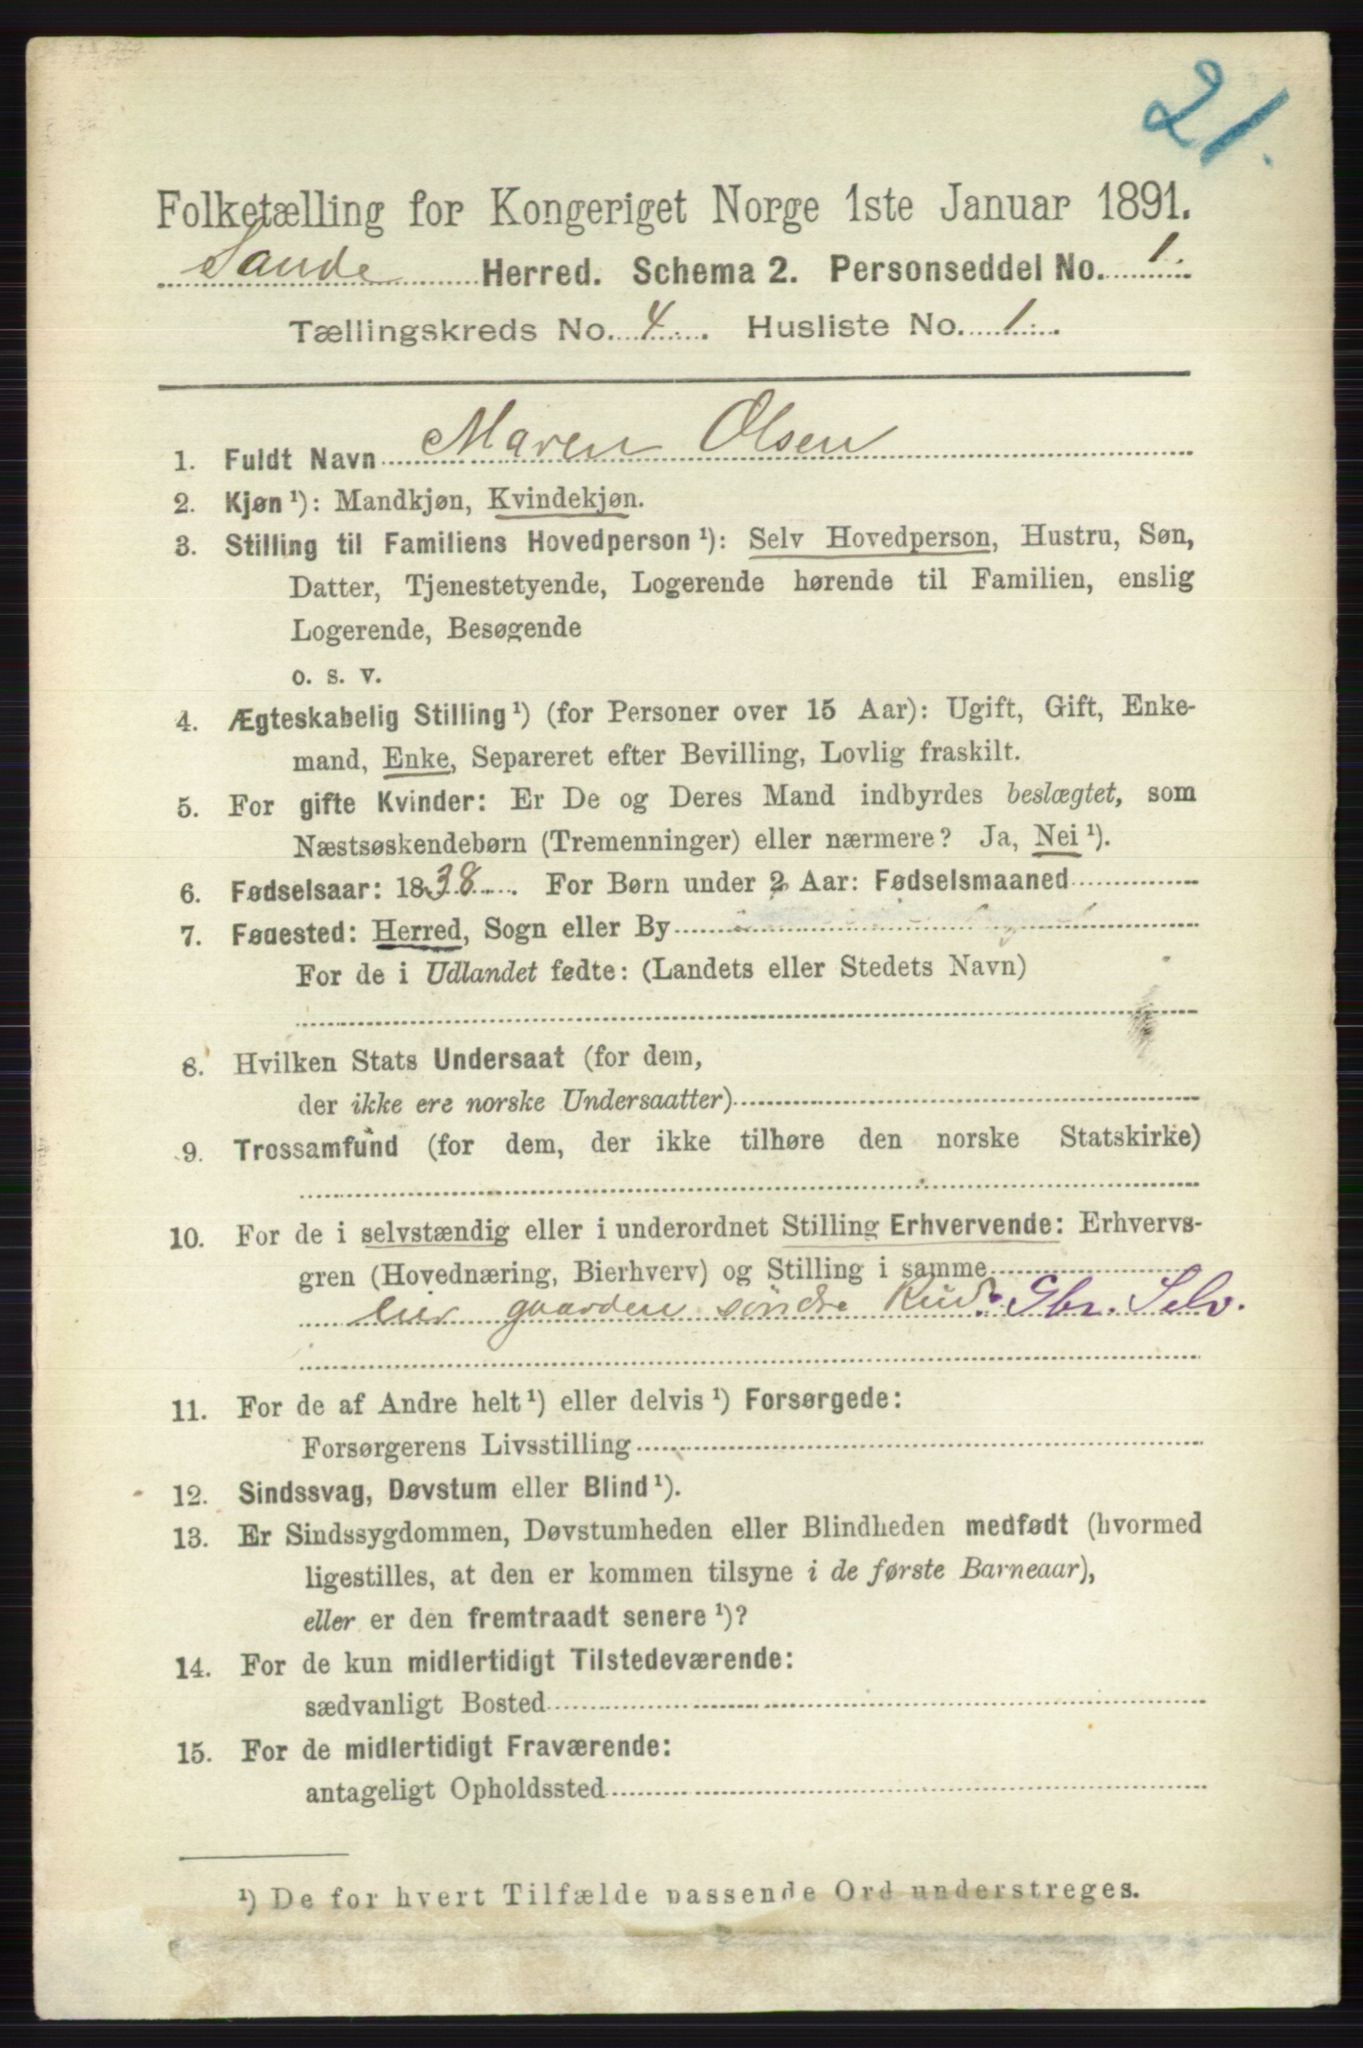 21.
Folketælling for Kongeriget Norge 1ste Januar 1891.
Sande Herred. Schema 2. Personseddel No. 1.
Tællingskreds No. 4. Husliste No. 1.
1. Fuldt Navn Maren Olsen
2. Kjøn ¹): Mandkjøn, Kvindekjøn.
3. Stilling til Familiens Hovedperson ¹): Selv Hovedperson, Hustru, Søn,
Datter, Tjenestetyende, Logerende hørende til Familien, enslig
Logerende, Besøgende
o. s. v.
4. Ægteskabelig Stilling ¹) (for Personer over 15 Aar): Ugift, Gift, Enke-
mand, Enke, Separeret efter Bevilling, Lovlig fraskilt.
5. For gifte Kvinder: Er De og Deres Mand indbyrdes beslægtet, som
Næstsøskendebørn (Tremenninger) eller nærmere? Ja, Nei ¹).
6. Fødselsaar: 1838. For Børn under 2 Aar: Fødselsmaaned
7. Fødested: Herred, Sogn eller By
For de i Udlandet fødte: (Landets eller Stedets Navn)
8. Hvilken Stats Undersaat (for dem,
der ikke ere norske Undersaatter)
9. Trossamfund (for dem, der ikke tilhøre den norske Statskirke)
10. For de i selvstændig eller i underordnet Stilling Erhvervende: Erhvervs-
gren (Hovednæring, Bierhverv) og Stilling i samme
eier gaarden søndre Rud. Gbr. Selv.
11. For de af Andre helt ¹) eller delvis ¹) Forsørgede:
Forsørgerens Livsstilling
12. Sindssvag, Døvstum eller Blind ¹).
13. Er Sindssygdommen, Døvstumheden eller Blindheden medfødt (hvormed
ligestilles, at den er kommen tilsyne i de første Barneaar),
eller er den fremtraadt senere ¹)?
14. For de kun midlertidigt Tilstedeværende:
sædvanligt Bosted
15. For de midlertidigt Fraværende:
antageligt Opholdssted
¹) De for hvert Tilfælde passende Ord understreges.